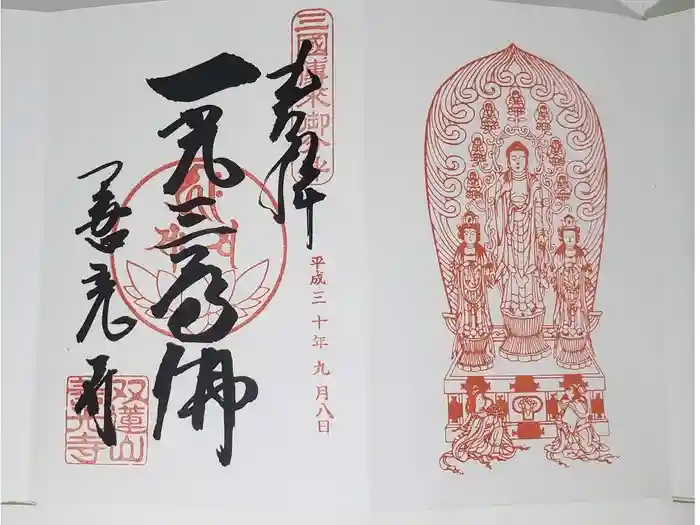 三國傳来御分身
奉拝
平成三十年九月八日
一光三尊佛
善光寺
双蓮山
善光寺